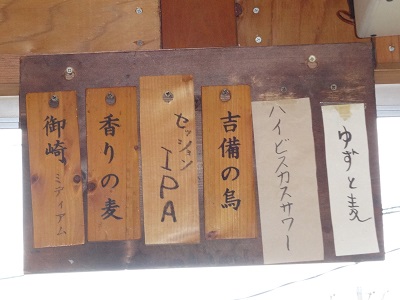 御崎 ミディアム
香りの麦
セッション IPA
吉備の烏
ハイビスカスサワー
ゆずと麦